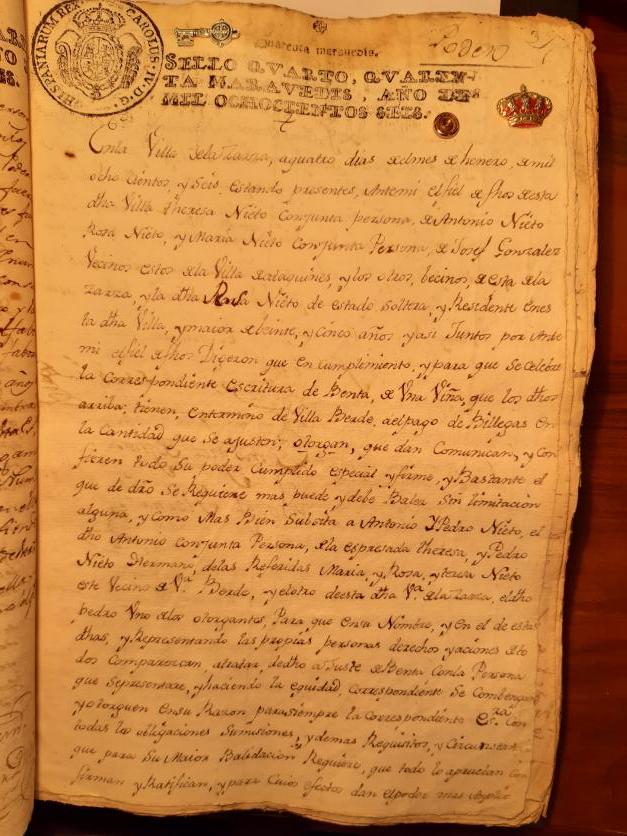 CAROLUS IV D. G. HISPANIARUM REX
Quarenta maravedis.
Poder
SELLO QVARTO, QVAREN-
TA MARAVEDIS, AÑO DE
MIL OCHOCIENTOS SEIS.
Enla Villa dela Zarza, aquatro dias delmes de henero, de mil
ocho cientos, y Seis, estando presentes, Antemi elfiel de fhos desta
dha Villa theresa Nieto Conjunta persona, de Antonio Nieto
Rosa Nieto, y Maria Nieto Conjunta Persona, de Josef Gonzalez
Vecinos estos dela Villa de ataquines, y los otros, becinos, de esta dela
Zarza, y la dha Rosa Nieto de estado Soltera, y Residente enes
ta dha Villa, y maior de beinte, y Cinco años y asi Juntos por Ante
mi elfiel de fhos Digeron que en Cumplimiento, y para que se Celebre
la Correspondiente escritura de Benta, de Vna Viña, que los dhos
arriba, tienen, entermino de Villa Berde, ael pago de Billegas en
la Cantidad que Se ajusten; otorgan, que dan Comunican, y Con
fieren todo Su poder Cumplido especial y firme, y Bastante el
que de dro Se Requiere mas puede y debe Baler Sin limitacion
alguna, y Como Mas Bien Subsista a Antonio y Pedro Nieto, el
dho Antonio Conjunta Persona, dela espresada theresa, y Pedro
Nieto Hermano, delas Referidas Maria y Rosa, y teresa Nieto
este Vecino de Vª Berde, y elotro deesta dha Vª dela Zarza, el dho
pedro Vno delos otorgantes, Para que ensu Nombre, y en el de estas
dhas, y Representando las propias personas derechos y aciones de to
dos Comparezcan, atratar, dedho aJuste de Benta Conla Persona
que Sepresentare, y haciendo la equidad, Correspondiente Se Combengan
y otorguen ensu Razon parasiempre la Correspondiente esra Con
todas las obligaciones Sumisiones, y demas Requisitos, y Circunstan
que para Su Maior Balidacion se Requiere, que todo lo aprueban Con
firman y Ratifican, y para Cuios efectos dan elpoder mas